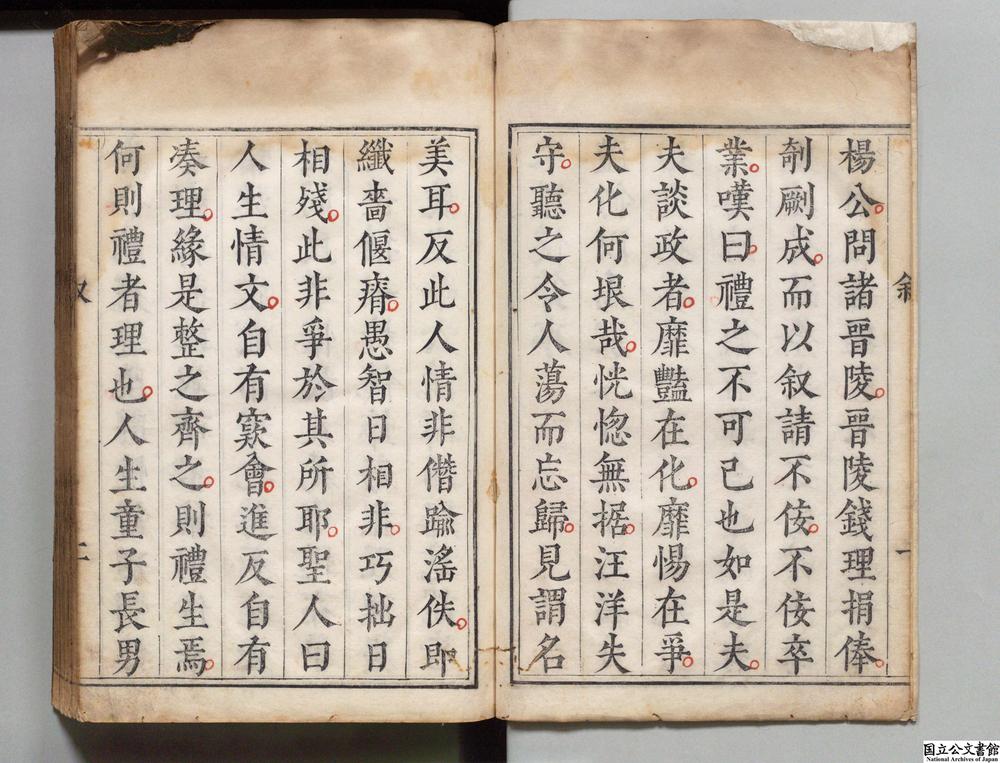 楊公問諸晋陵晋陵錢理捐俸
剞劂成而以叙請不佞不佞卒
業嘆曰禮之不可已也如是夫
夫談政者靡豔在化靡惕在爭
夫化何垠哉恍惚無据汪洋失
守聽之令人蕩而忘歸見謂名
美耳反此人情非僭踰滛佚即
纖嗇偃瘠愚智日相非巧拙日
相殘此非爭於其所耶聖人曰
人生情文自有窾會進反自有
凑理緣是整之齊之則禮生焉
何則禮者理也人生童子長男
叙
一
叙
二
国立公文書館
National Archives of Japan